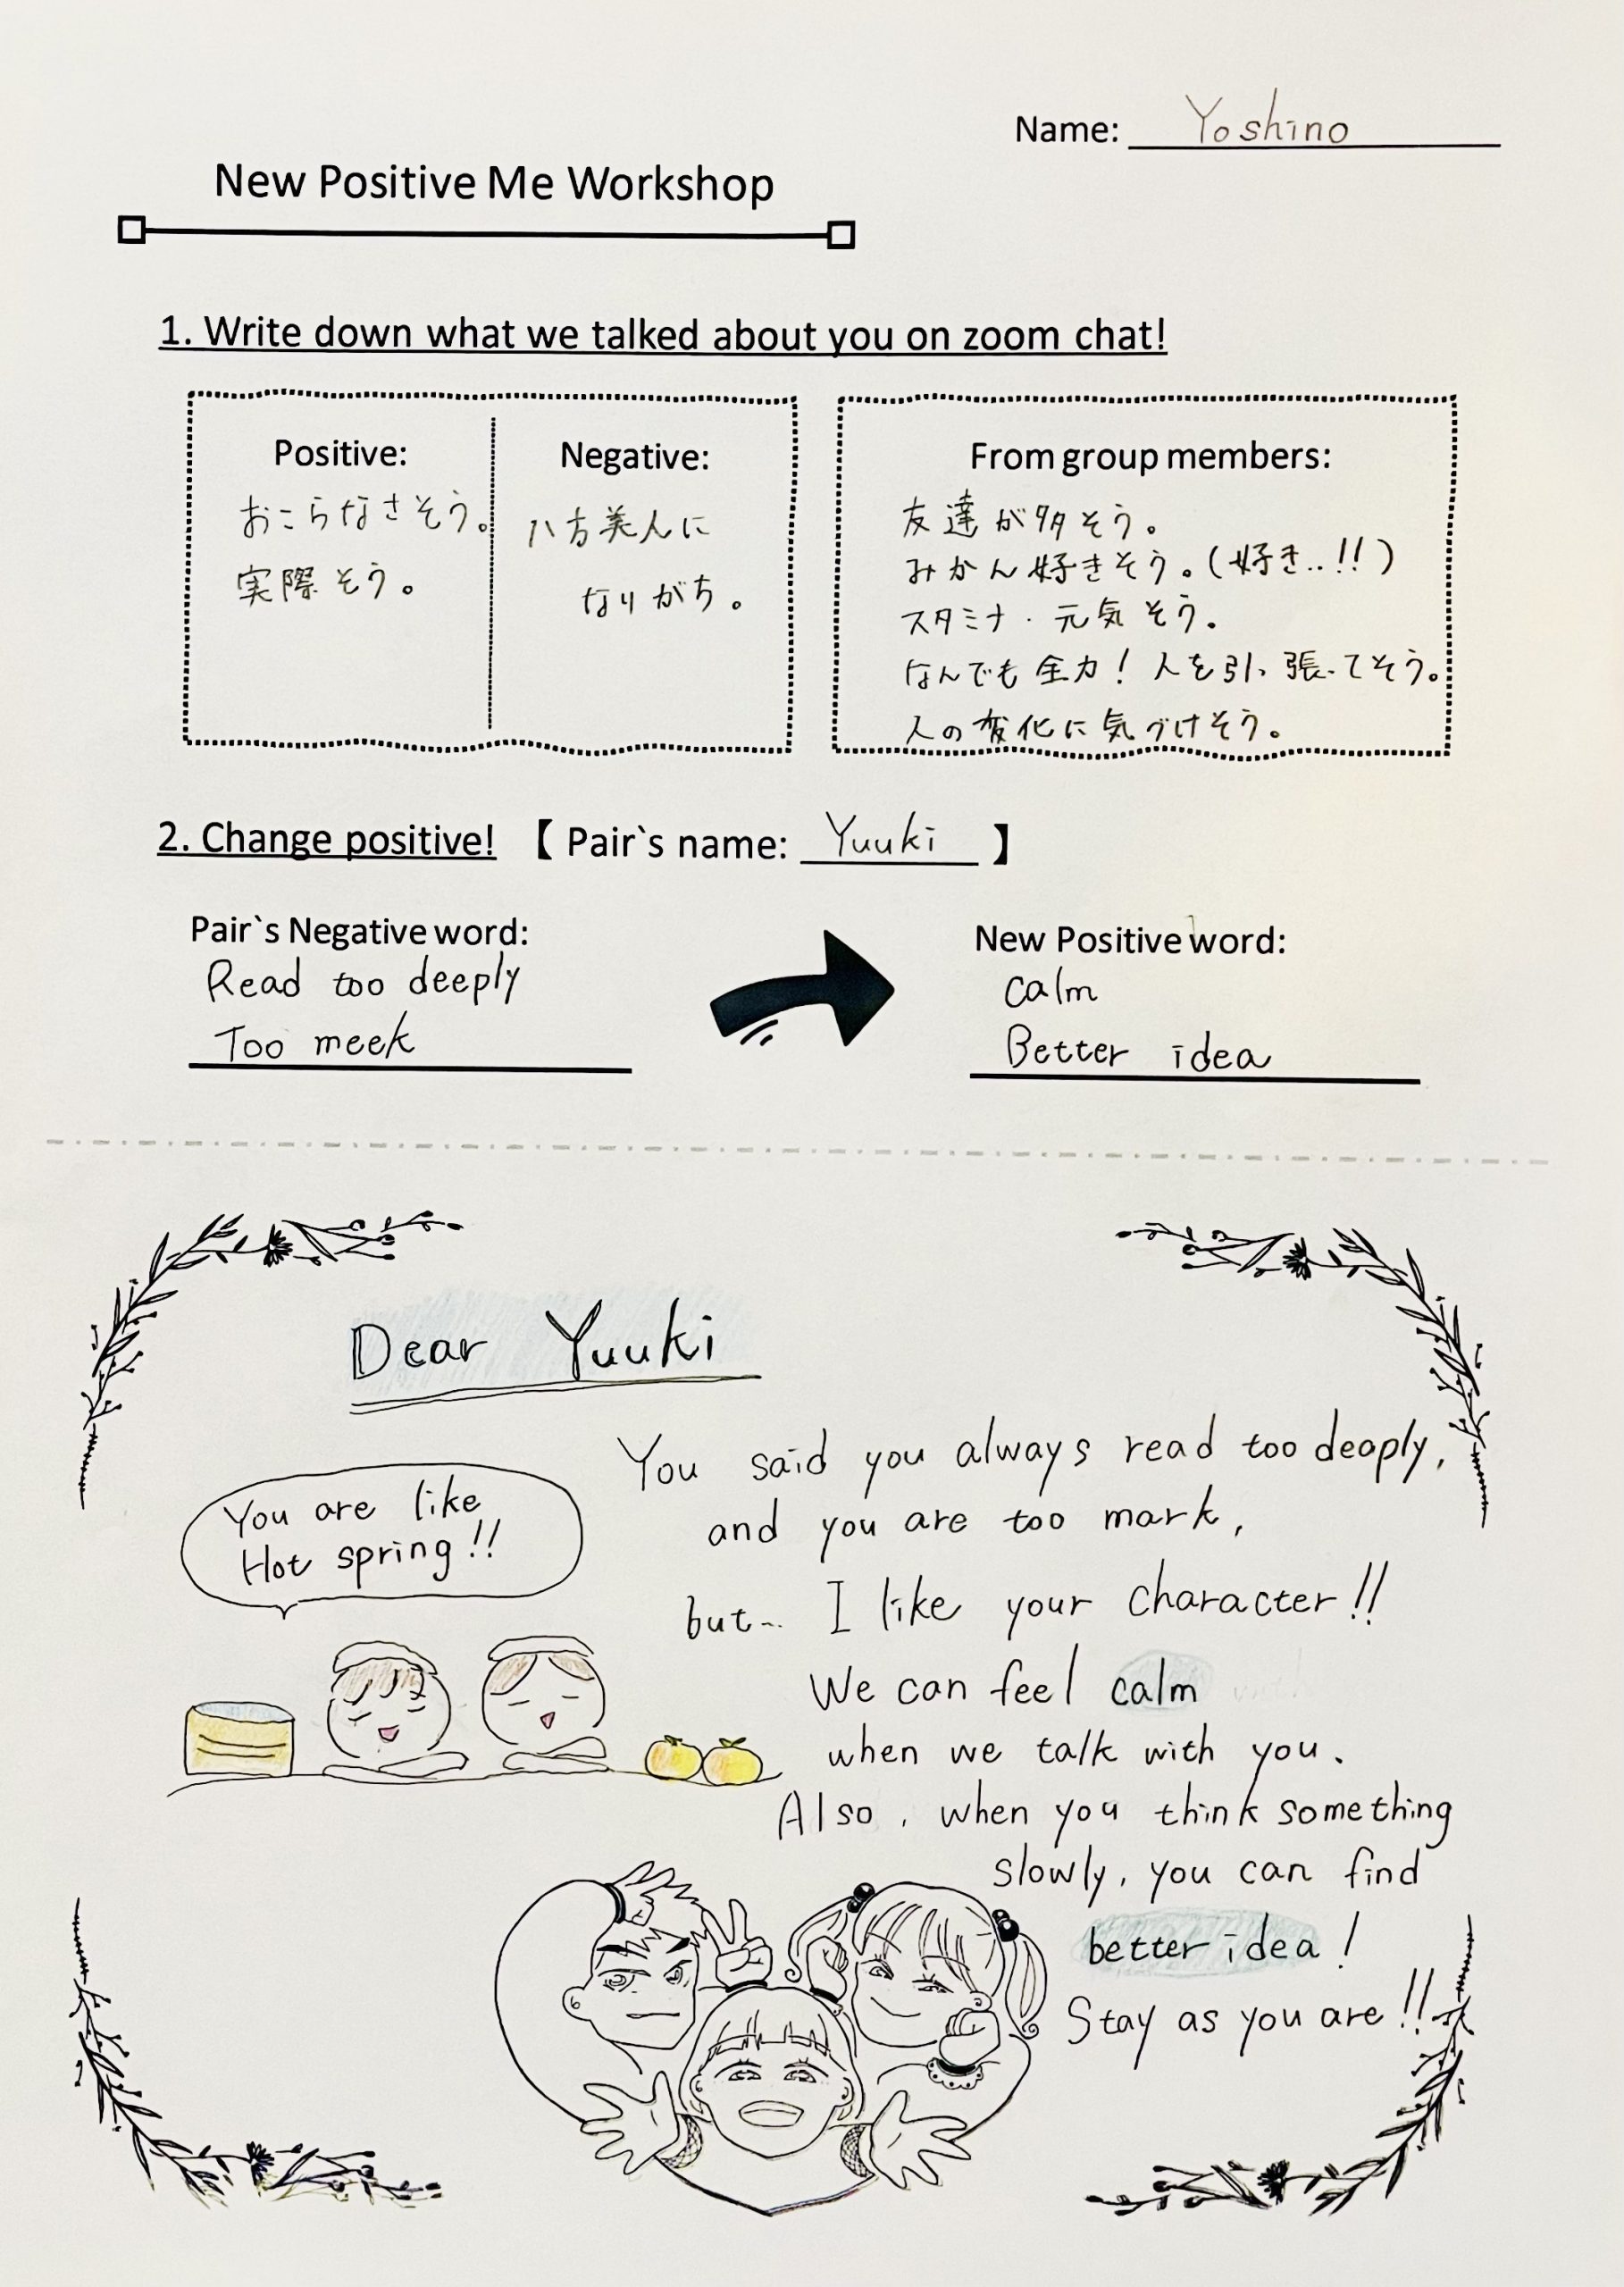 Name: Yoshino
New Positive Me Workshop
1. Write down what we talked about you on zoom chat!
Positive:
おこらなさそう。
実際そう。
Negative:
八方美人に
なりがち。
From group members:
友達が多そう。
みかん好きそう。(好き..!!)
スタミナ・元気そう。
なんでも全力!人を引っ張ってそう。
人の変化に気づけそう。
2. Change positive! 【 Pair`s name: Yuuki 】
Pair`s Negative word:
Read too deeply
Too meek
New Positive word:
calm
Better idea
Dear Yuuki
You said you always read too deaply,
and you are too mark,
but... I like your character!!
We can feel calm
when we talk with you.
Also, when you think something
slowly, you can find
better idea!
Stay as you are!!
You are like
Hot spring!!